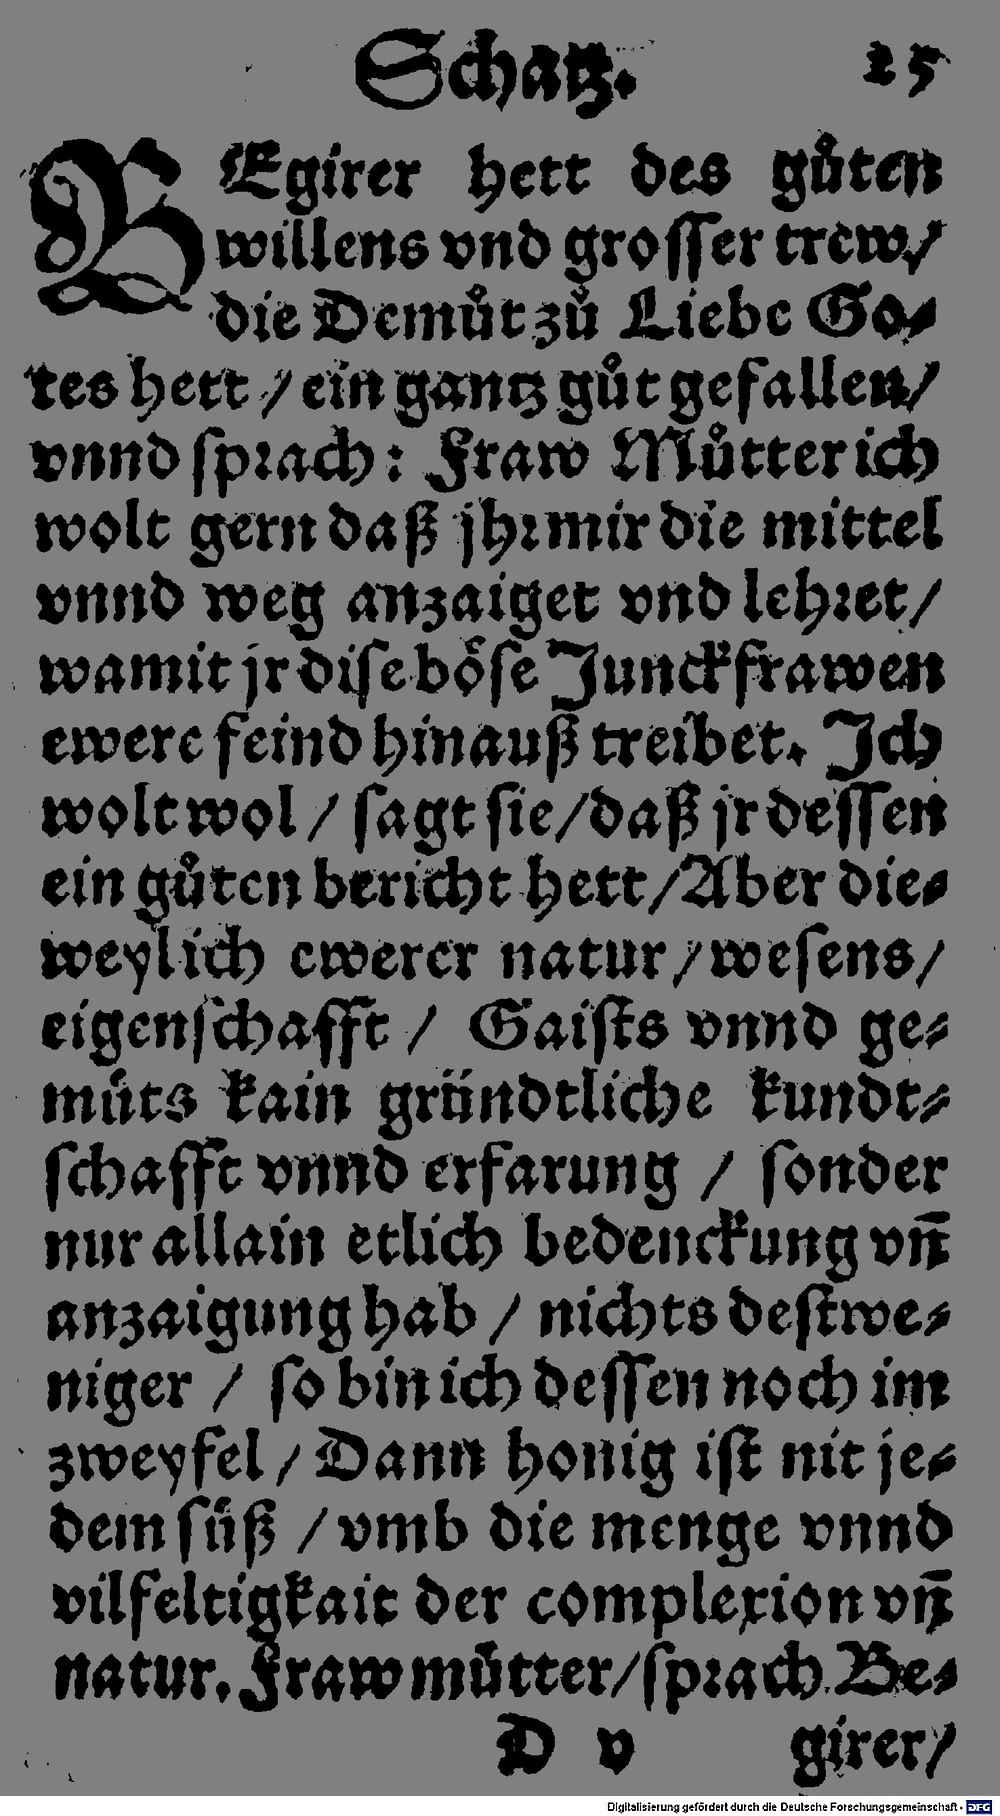 Schatz. 25
BEgirer hett des guͦten
willens vnd grosser trew/
die Demuͦt zuͦ Liebe Go⸗
tes hett / ein gantz guͦt gefallen/
vnnd sprach: Fraw Muͦtter ich
wolt gern daß jhr mir die mittel
vnnd weg anzaiget vnd lehret/
wamit jr dise boͤse Junckfrawen
ewere feind hinauß treibet. Ich
wolt wol / sagt sie/daß jr dessen
ein guͦten bericht hett/Aber die⸗
weyl ich ewerer natur / wesens/
eigenschafft / Gaists vnnd ge⸗
muͤts kain gründtliche kundt⸗
schafft vnnd erfarung / sonder
nur allain etlich bedenckung vñ
anzaigung hab / nichts destwe⸗
niger / so bin ich dessen noch im
zweyfel / Dann honig ist nit je⸗
dem suͤß / vmb die menge vnnd
vilfeltigkait der complexion vñ
natur. Fraw muͦtter/sprach Be⸗
D v girer/
Digitalisierung gefördert durch die Deutsche Forschungsgemeinschaft - DFG